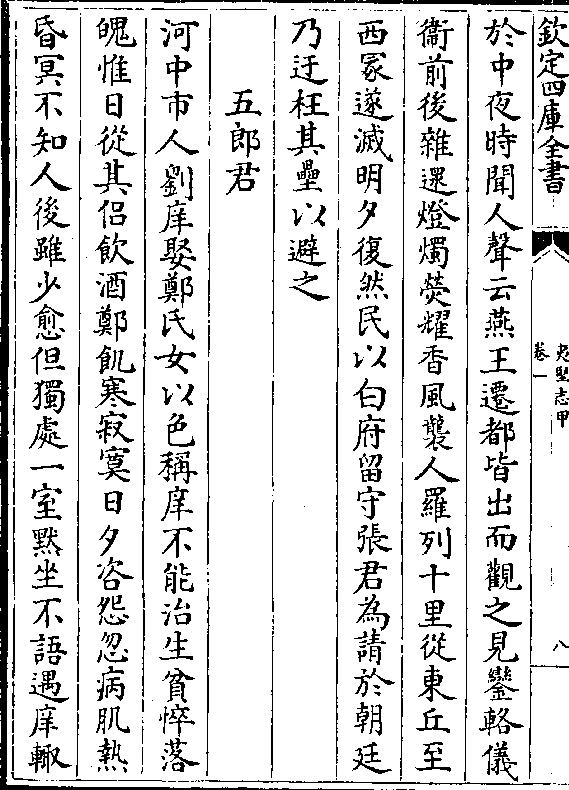 欽定四庫全書
夷堅志甲
卷一
八
於中夜時聞人聲云燕王遷都皆出而觀之見鑾輅儀
衞前後雜遝燈燭熒耀香風襲人羅列十里從東丘至
西冢遂滅明夕復然民以白府留守張君為請於朝廷
乃迂枉其壘以避之
五郎君
河中市人劉庠娶鄭氏女以色稱庠不能治生貧悴落
魄惟日從其侣飲酒鄭飢寒寂寞日夕咨怨忽病肌熱
昏冥不知人後雖少愈但獨處一室默坐不語遇庠輙